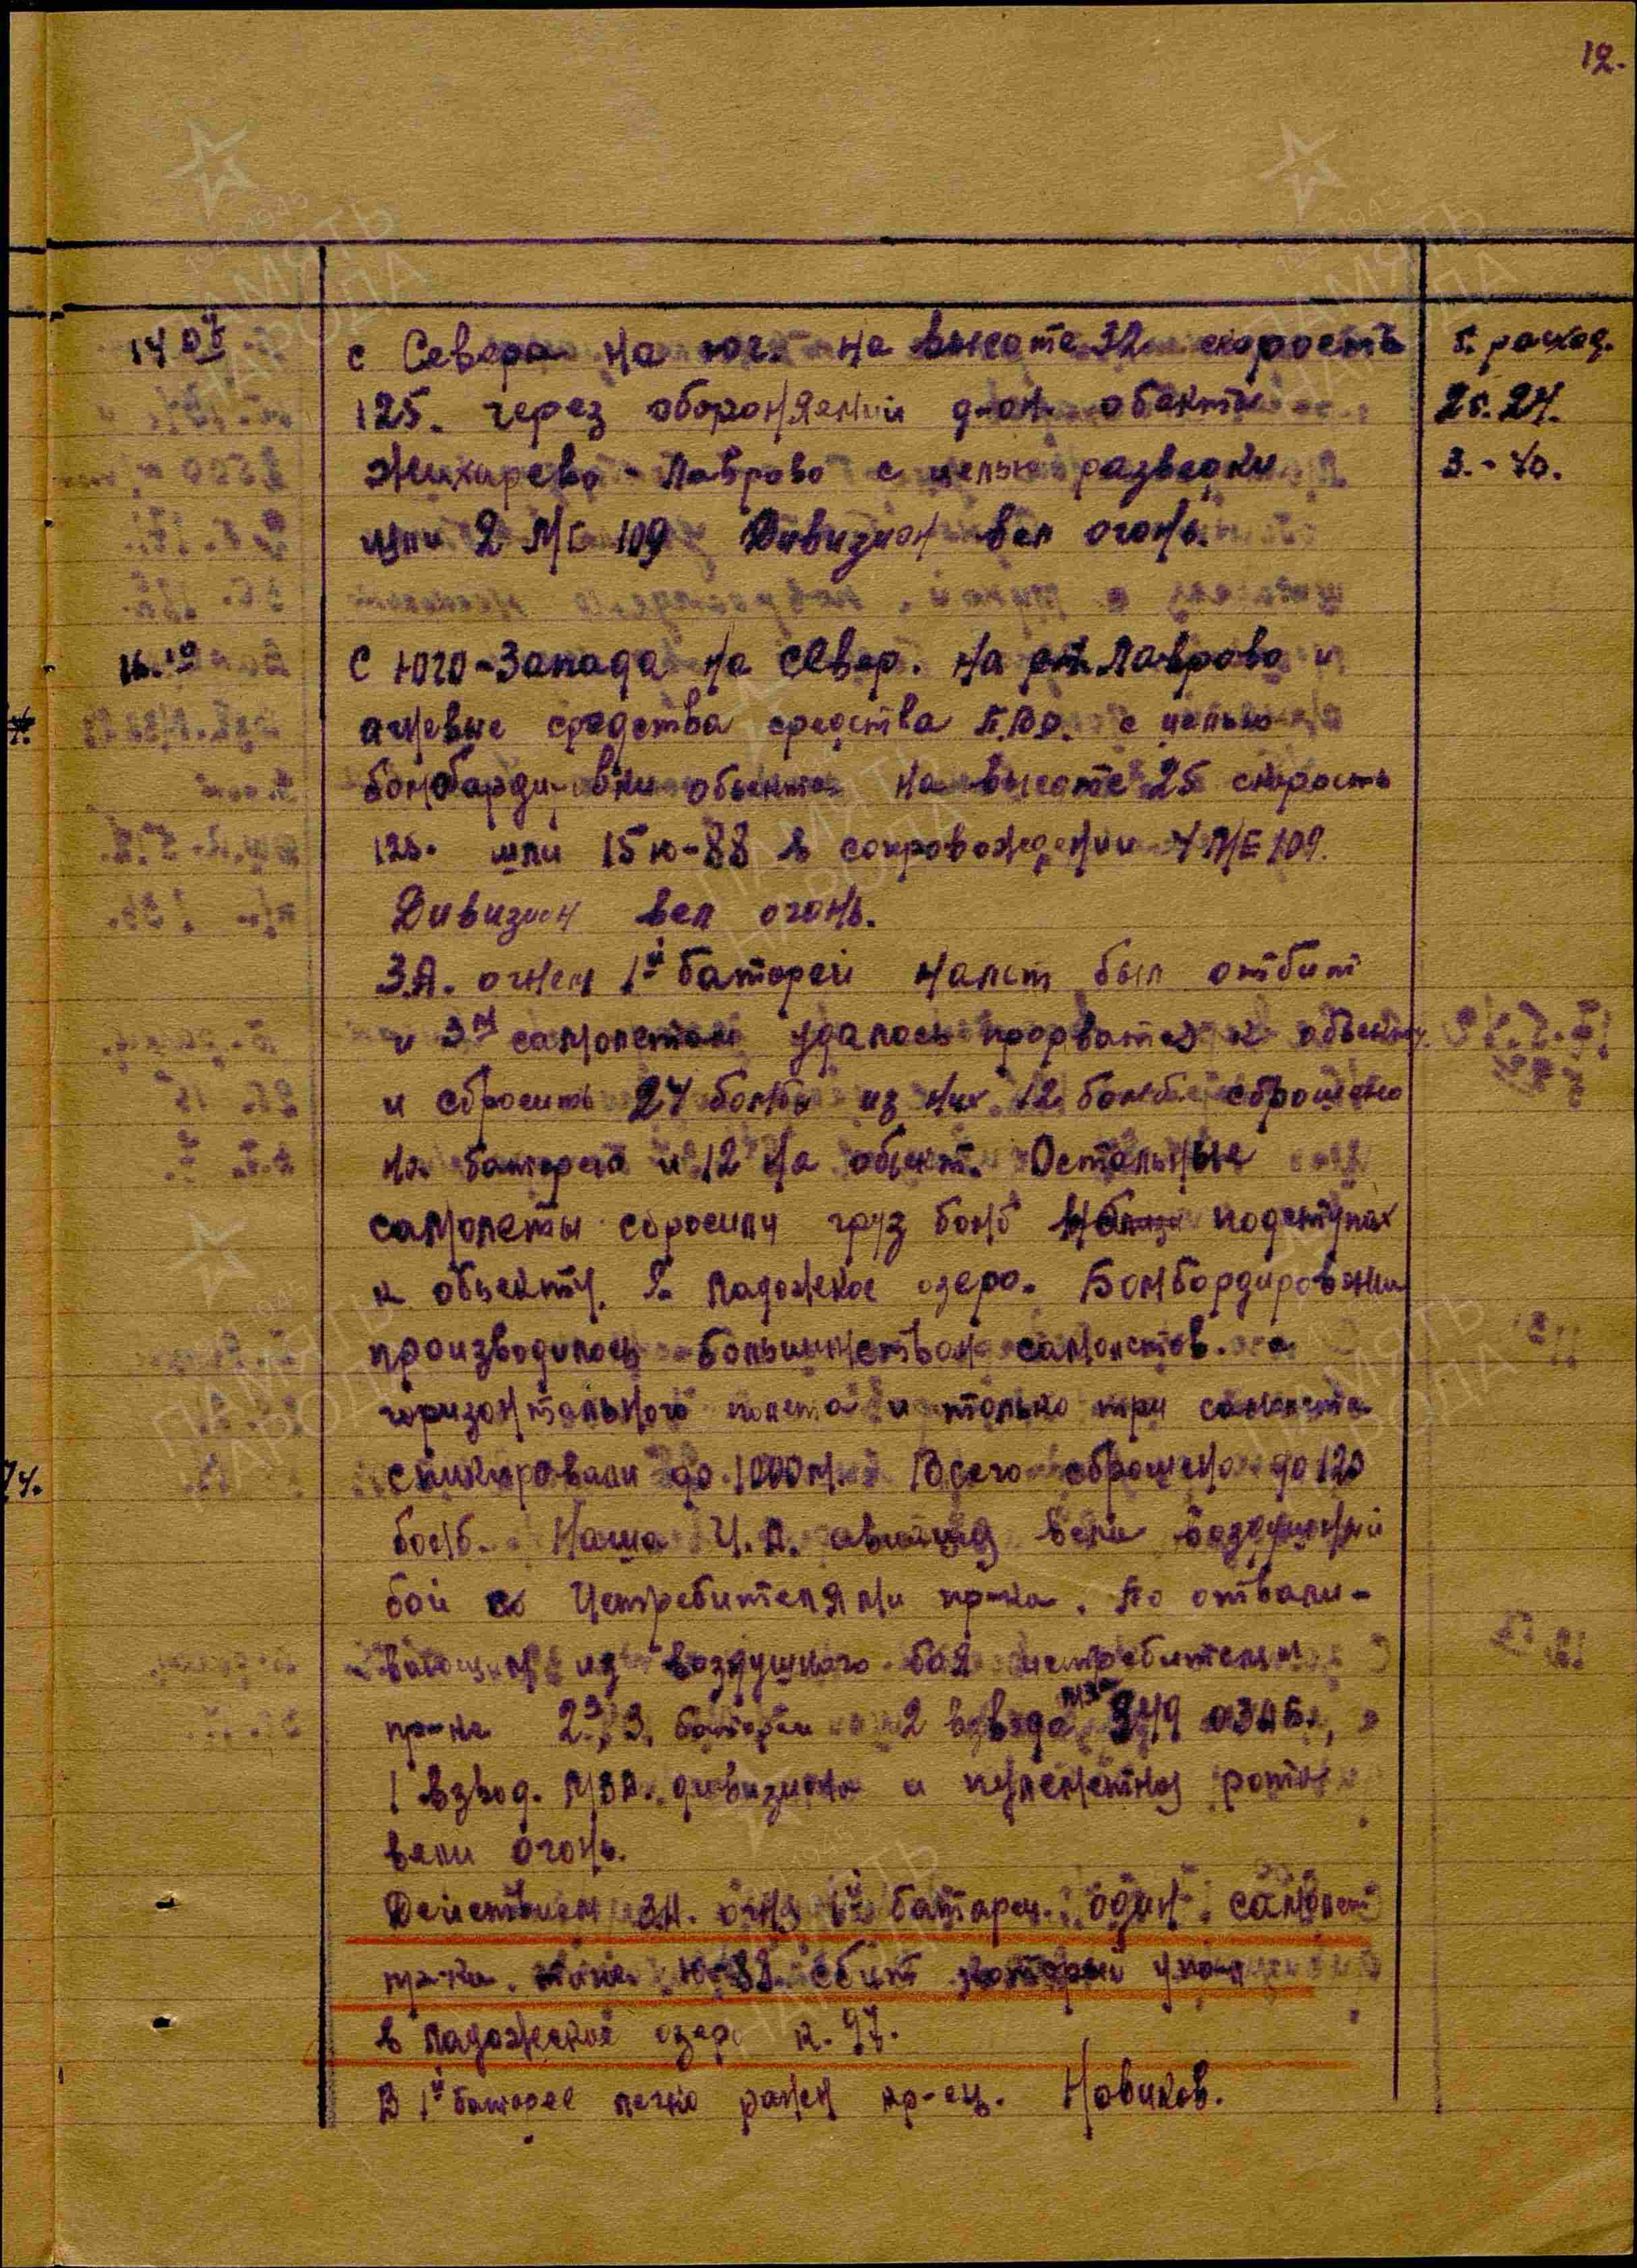 12.
14 07 с Севера на юг. на высоте 32 скорость Б. расход.
125. через обороняемый д-он. обекты 2б. 24.
Жихарево - Лаврово с целью разведки 3. - 40.
шли 2 МЕ 109 Дивизион вел огонь.
16.10 С Юго-Запада на север. На ст. Лаврово и
агневые средства средства П.В.О. с целью
бомбарди-вки объекта на высоте 25 скорость
125. шли 15 ю-88 в сопровождении 4 МЕ 109.
Дивизион вел огонь.
З.А. огнем 1й батареи налет был отбит
и 3м самолетам удалось прорватся к объекту
и сбросить 24 бомбы из них 12 бомб сброшено
на батарею и 12 на объект. Остальные
самолеты сбросили груз бомб подступах
к объекту. Ладожское озеро. Бомбардировки
производилось большинством самолетов. с
горизонтального полета и только три самолета
спикировали до 1000 м. Всего сброшено до 120
бомб. Наша И.А. авиация вели воздушный
бой с Истребителями пр-ка. По отвали-
вающим из воздушного боя истребителям
пр-ка 2я, 3. батареи 2 взвода МЗА ОЗАБ.,
1 взвод. МЗА. дивизиона и пулеметная рота
вели огонь.
Действием ЗА. огня 1й батареи. один самолет
пр-ка. типа Ю-88. сбит который упал
в ладожское озеро к. 97.
В 1й батарее легко ранен кр-ец. Новиков.